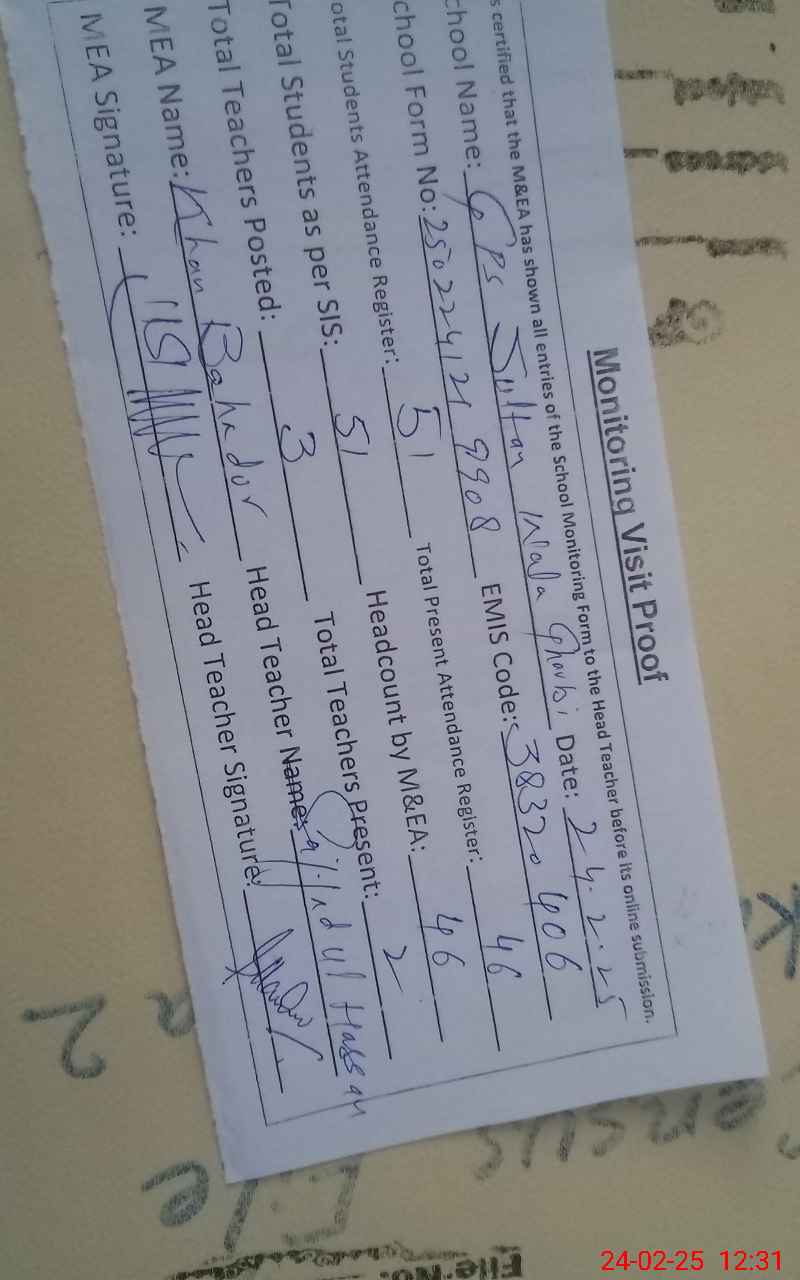 Monitoring Visit Proof
s certified that the M&EA has shown all entries of the School Monitoring Form to the Head Teacher before its online submission.
chool Name: GPS Sultan Wala Gharbi Date: 24.2.25
chool Form No: 250224121 9908 EMIS Code: 38320406
otal Students Attendance Register: 51 Total Present Attendance Register: 46
Total Students as per SIS: 51 Headcount by M&EA: 46
Total Teachers Posted: 3 Total Teachers Present: 2
MEA Name: Khan Bahadur Head Teacher Name: Sajjad Ul Hassan
MEA Signature: Head Teacher Signature:
File No.
24-02-25 12:31